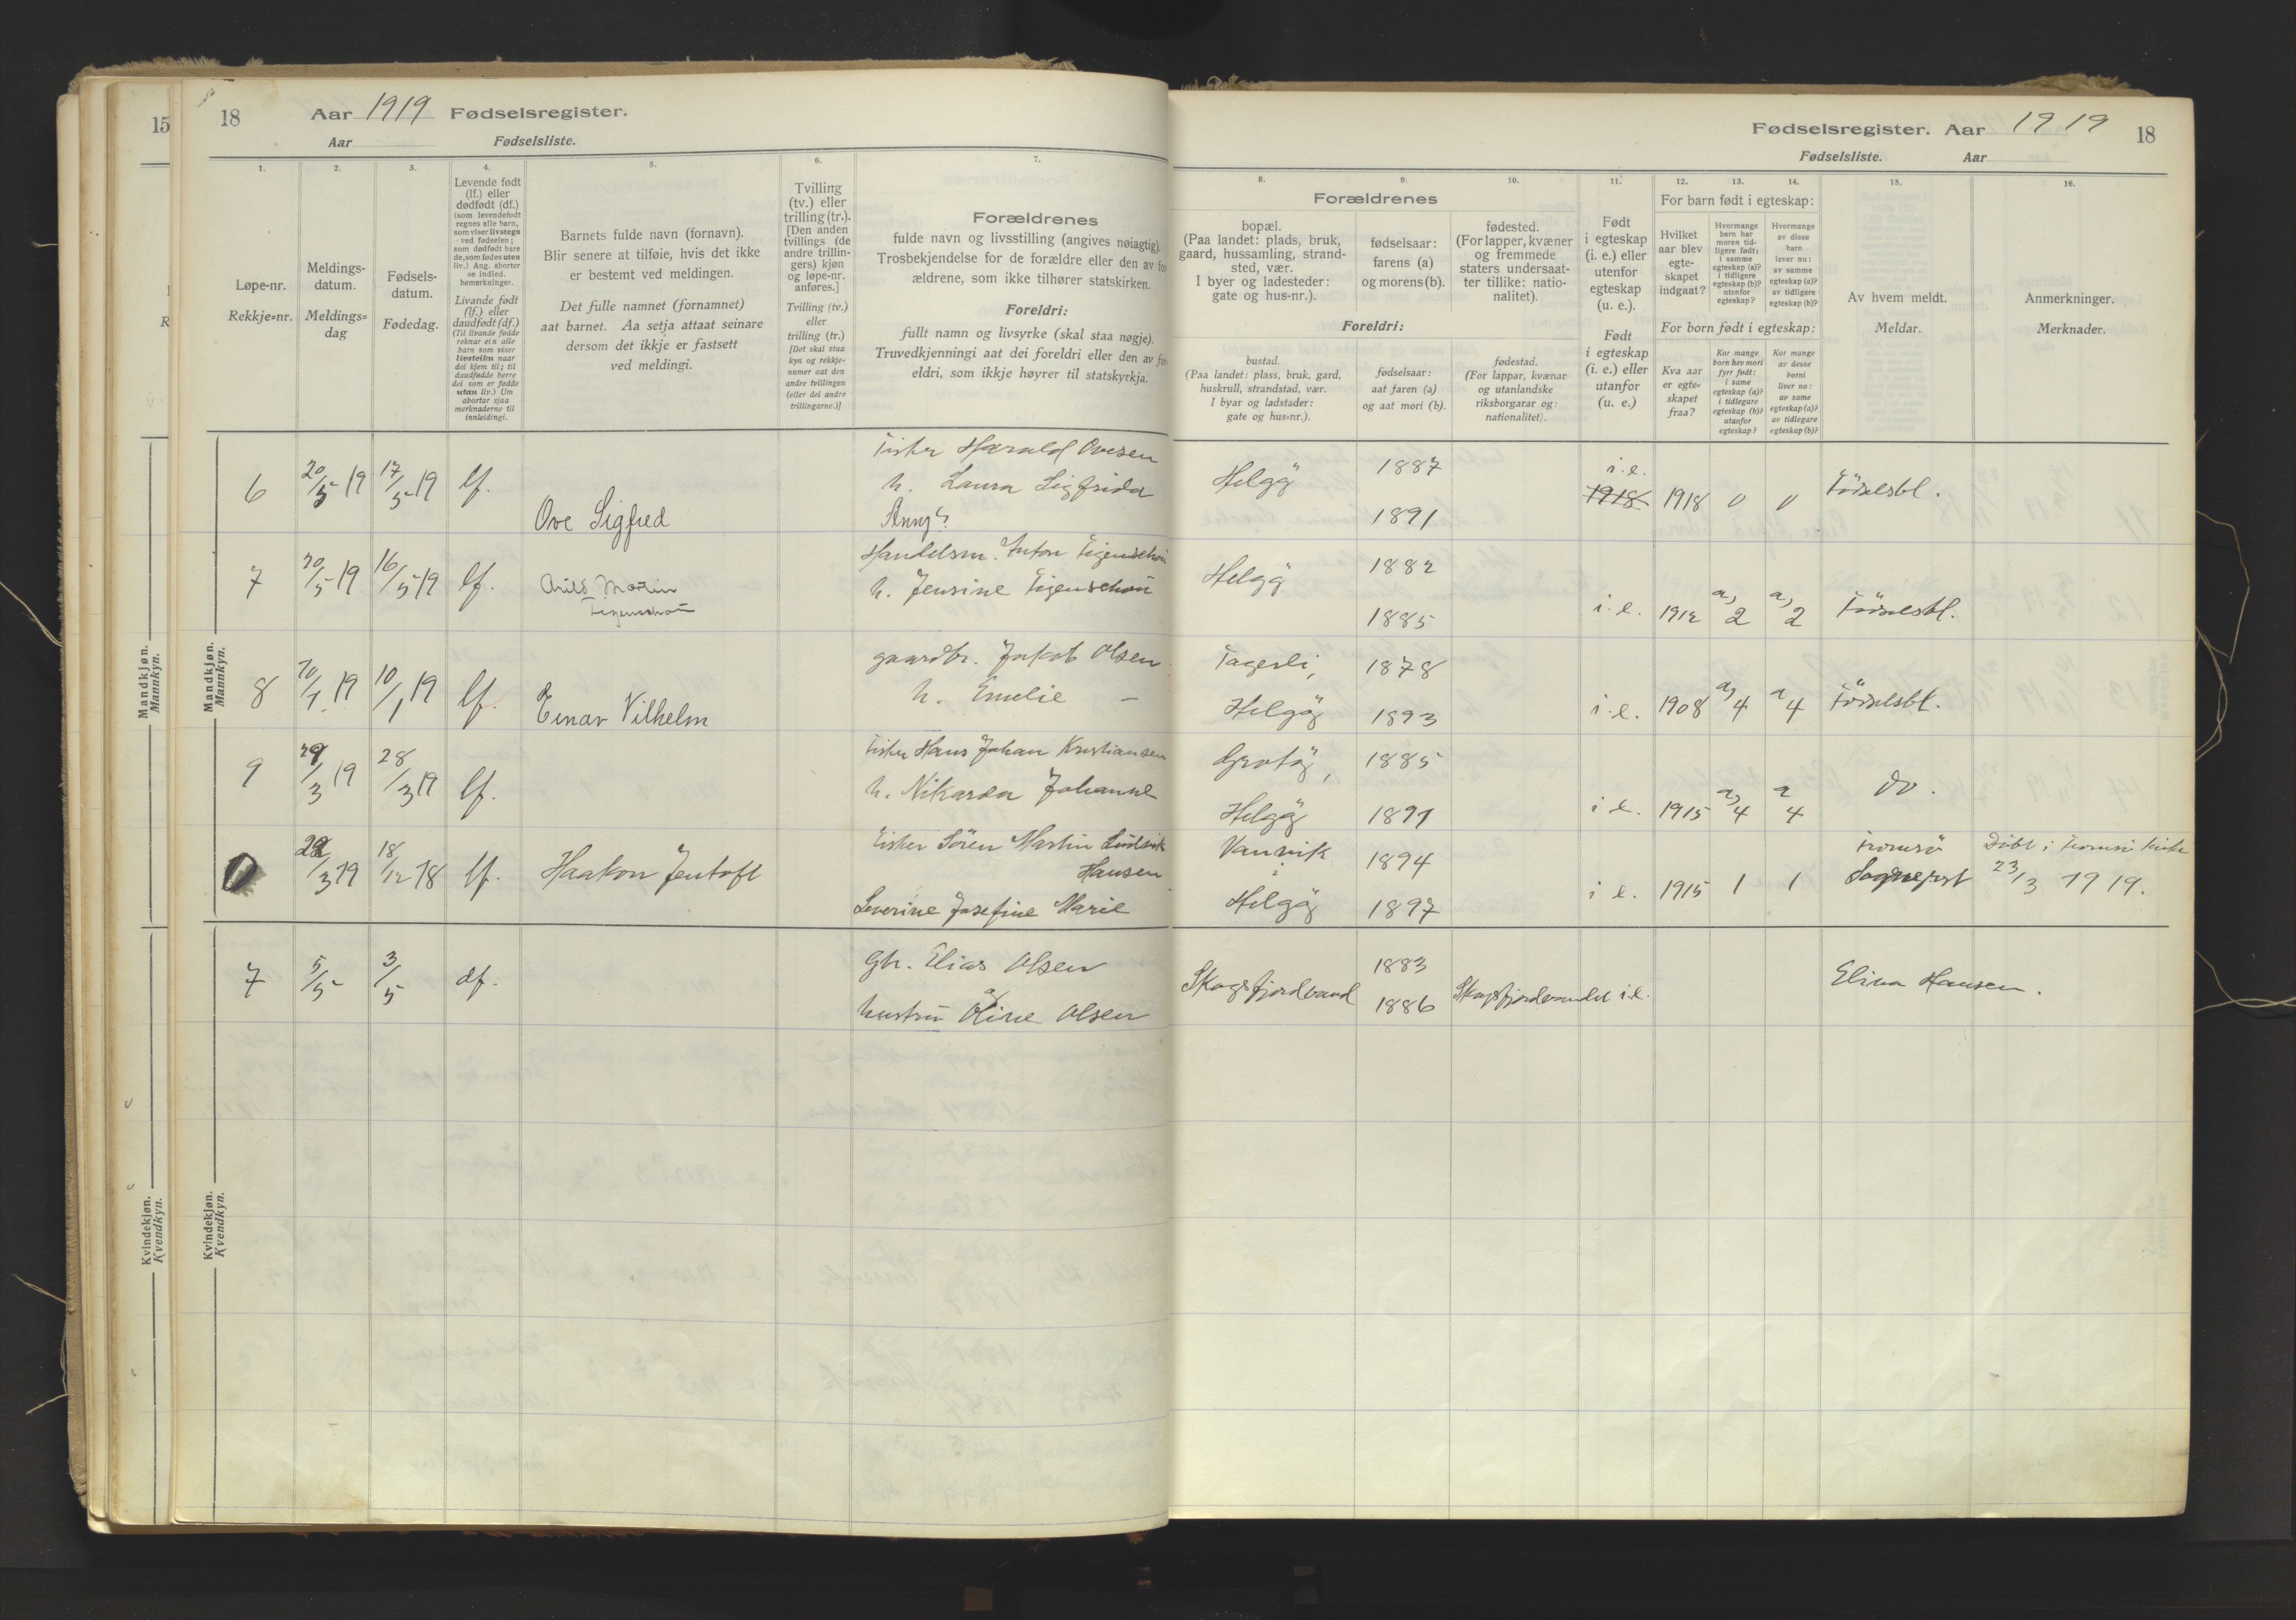 15
18
Aar 1919 Fødselsregister.
Aar Fødselsliste.
Fødselsregister. Aar 1919
18
Fødselsliste. Aar
1.
2.
3.
4.
5.
6.
7.
8.
9.
10.
11.
12.
13.
14.
15.
16.
Løpe-nr.
Rekkje=nr.
Meldings-
datum.
Meldings=
dag
Fødsels-
datum.
Fødedag.
Levende født
(lf.) eller
dødfødt (df.)
(som levendefødt
regnes alle barn,
som viser livstegn
ved fødselen;
som dødfødt bare
de, som fødes uten
liv.) Ang. aborter
se indled.
bemerkninger.
Livande født
(lf.) eller
daudfødt (df.)
(Til livande fødde
reknar ein alle
barn som viser
livsteikn naar
dei kjem til; til
daudfødde berre
dei som er fødde
utan liv.) Um
abortar sjaa
merknaderne til
innleidingi.
Barnets fulde navn (fornavn).
Blir senere at tilføie, hvis det ikke
er bestemt ved meldingen.
Det fulle namnet (fornamnet)
aat barnet. Aa setja attaat seinare
dersom det ikkje er fastsett
ved meldingi.
Tvilling
(tv.) eller
trilling (tr.).
[Den anden
tvillings (de
andre trillin-
gers) kjøn
og løpe-nr.
anføres.]
Tvilling (tv.)
eller
trilling (tr.)
[Det skal staa
kyn og rekkje-
numer aat den
andre tvillingen
(eller dei andre
trillingarne.)]
Forældrenes
fulde navn og livsstilling (angives nøiagtig).
Trosbekjendelse for de forældre eller den av for-
ældrene, som ikke tilhører statskirken.
Foreldri:
fullt namn og livsyrke (skal staa nøgje).
Truvedkjenningi aat dei foreldri eller den av for-
eldri, som ikkje høyrer til statskyrkja.
Forældrenes
bopæl.
(Paa landet: plads, bruk,
gaard, hussamling, strand-
sted, vær.
I byer og ladesteder:
gate og hus-nr.).
fødselsaar:
farens (a)
og morens (b).
fødested.
(For lapper, kvæner
og fremmede
staters undersaat-
ter tillike: natio-
nalitet).
Foreldri:
bustad.
(Paa landet: plass, bruk, gard,
huskrull, strandstad, vær.
I byar og ladstader:
gate og hus=nr.).
fødselsaar:
aat faren (a)
og aat mori (b).
fødestad.
(For lappar, kvænar
og utanlandske
riksborgarar og:
nationalitet).
Født
i egteskap
(i. e.) eller
utenfor
egteskap
(u. e.).
Født
i egteskap
(i. e.) eller
utanfor
(u. e.)
For barn født i egteskap:
Hvilket
aar blev
egte-
skapet
indgaat?
Hvormange
barn har
moren tid-
ligere født:
i samme
egteskap (a)?
i tidligere
egteskap (b)?
utenfor
egteskap?
Hvormange
av disse
barn
lever nu:
av samme
egteskap (a)?
av tidligere
egteskap (b)?
For born født i egteskap:
Kva aar
er egte=
skapet
fraa?
Kor mange
born hev mori
fyrr født:
i same
egteskap (a)?
i tidlegare
egteskap (b)?
utanfor
egteskap?
Kor mange
av desse
borni
liver no:
av same
egteskap (a)?
av tidlegare
egteskap (b)?
Av hvem meldt.
Meldar.
Anmerkninger.
Merknader.
Mandkjøn.
Mannkyn.
Mandkjøn.
Mannkyn.
6 20/5 19 17/5 19 lf. Ove Sigfred
Fisker Harald Ovesen
h. Laura Sigfrida
Helgø 1887 1891 i.e. 1918 1918 0 0 Fødselsbl.
7 20/5 19 16/5 19 lf. Arild Martin
Figenschou
Handelsm. Anton Figenschou
h. Jensine Figenschou
Helgø 1882 1885 i.e. 1912 a, 2 a, 2 Fødselsbl.
8 19 10/1 19 lf. Einar Vilhelm
gaardbr. Jakob Olsen
h. Emelie —
Helgø 1878 1893 i.e. 1908 a, 4 a 4 Fødselsbl.
9 29/3 19 28/3 19 lf.
Fisker Hans Johan Kristiansen
h. Nikarda Johanne
Grotø, Helgø 1885 1891 i e. 1915 a, 4 a 4 do.
22/3 19 18/12 18 lf. Haakon Jentoft
Fisker Sören Martin Ludvik
Hansen
Severine Josefine Marie
Vannvik i Helgø 1894 1897 i e. 1915 1 1 Tromsø
Sogneprest
Döbt i Tromsø kirke
23/3 1919.
Kvindekjøn.
Kvendkyn.
Kvindekjøn.
Kvendkyn.
7 5/5 3/5 df.
Gb. Elias Olsen
og
hustru Oline Olsen
Skogsfjordvand 1883 1886 Skogsfjordvandet i.e. Elina Hansen.